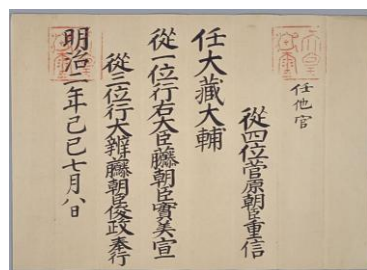 任他官
從四位菅原朝臣重信
任大藏大輔
從一位行右大臣藤朝臣實美宣
從三位行大辨藤朝臣俊政奉行
明治二年己巳七月八日